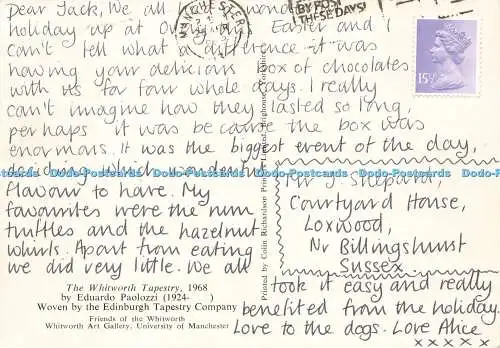 Dear Jack, We all had a wonderful
holiday up at over Easter and I
can't tell what a difference it was
having your delicious box of chocolates
with us for four whole days. I really
can't imagine how they lasted so long,
perhaps it was because the box was
enormous. It was the biggest event of the day,
deciding which wonderful
flavour to have. My
favourites were the rum
truffles and the hazelnut
whirls. Apart from eating
we did very little. We all
took it easy and really
benefited from the holiday.
Love to the dogs. Love Alice
xxxxx
MANCHESTER
BY POST
THESE DAYS!
15½P
Mr J. Shepard,
Courtyard House,
Loxwood,
Nr Billingshurst
Sussex.
The Whitworth Tapestry, 1968
by Eduardo Paolozzi (1924- )
Woven by the Edinburgh Tapestry Company
Friends of the Whitworth
Whitworth Art Gallery, University of Manchester
Printed by Colin Richardson Printers Limited Brighouse Yorkshire
Dodo-Postcards Dodo-Postcards Dodo-Postcards Dodo-Postcards Dodo-Postcards Dodo-Postcards